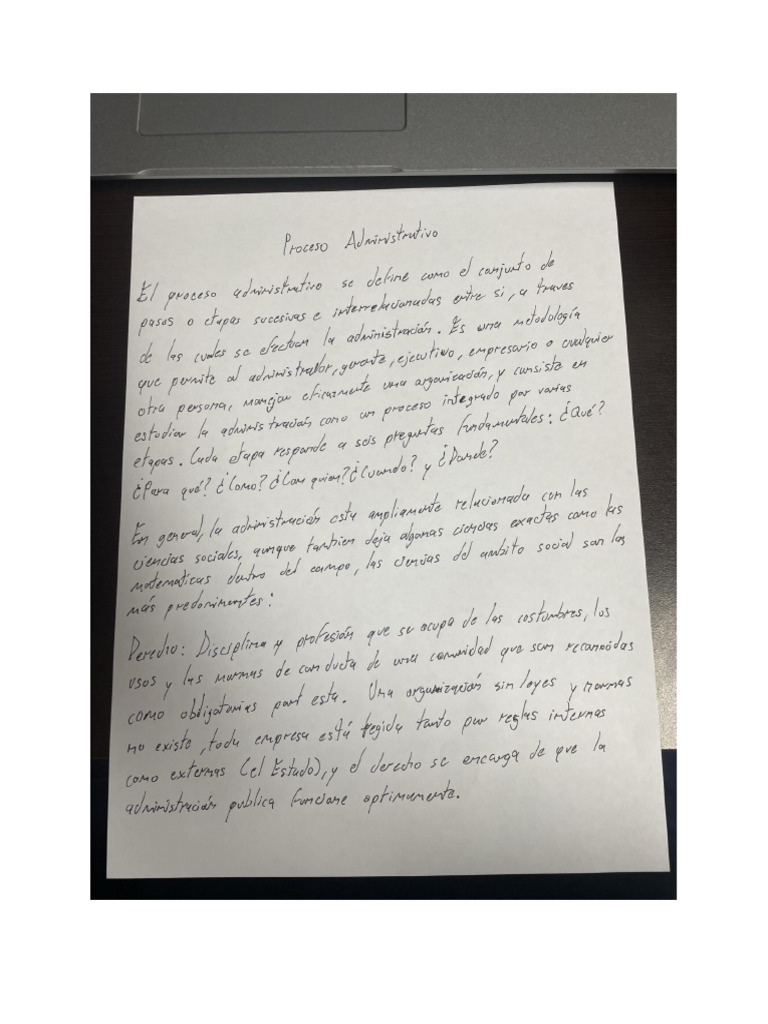 Proceso Administrativo
El proceso administrativo se define como el conjunto de
pasos o etapas sucesivas e interrelacionadas entre si, a traves
de las cuales se efectuan la administración. Es una metodología
que permite al administrador, gerente, ejecutivo, empresario o cualquier
otra persona, manejar eficazmente una organización, y consiste en
estudiar la administración como un proceso integrado por varias
etapas. Cada etapa responde a seis preguntas fundamentales: ¿Qué?
¿Para qué? ¿Como? ¿Con quien? ¿Cuando? y ¿Donde?
En general, la administración esta ampliamente relacionada con las
ciencias sociales, aunque tambien deja algunas ciencias exactas como las
matematicas dentro del campo, las ciencias del ambito social son las
más predominantes:
Derecho: Disciplina y profesión que se ocupa de las costumbres, los
usos y las normas de conducta de una comunidad que son reconocidas
como obligatorias para esta. Una organización sin leyes y normas
no existe, toda empresa está regida tanto por reglas internas
como externas (el Estado), y el derecho se encarga de que la
administración publica funcione optimamente.